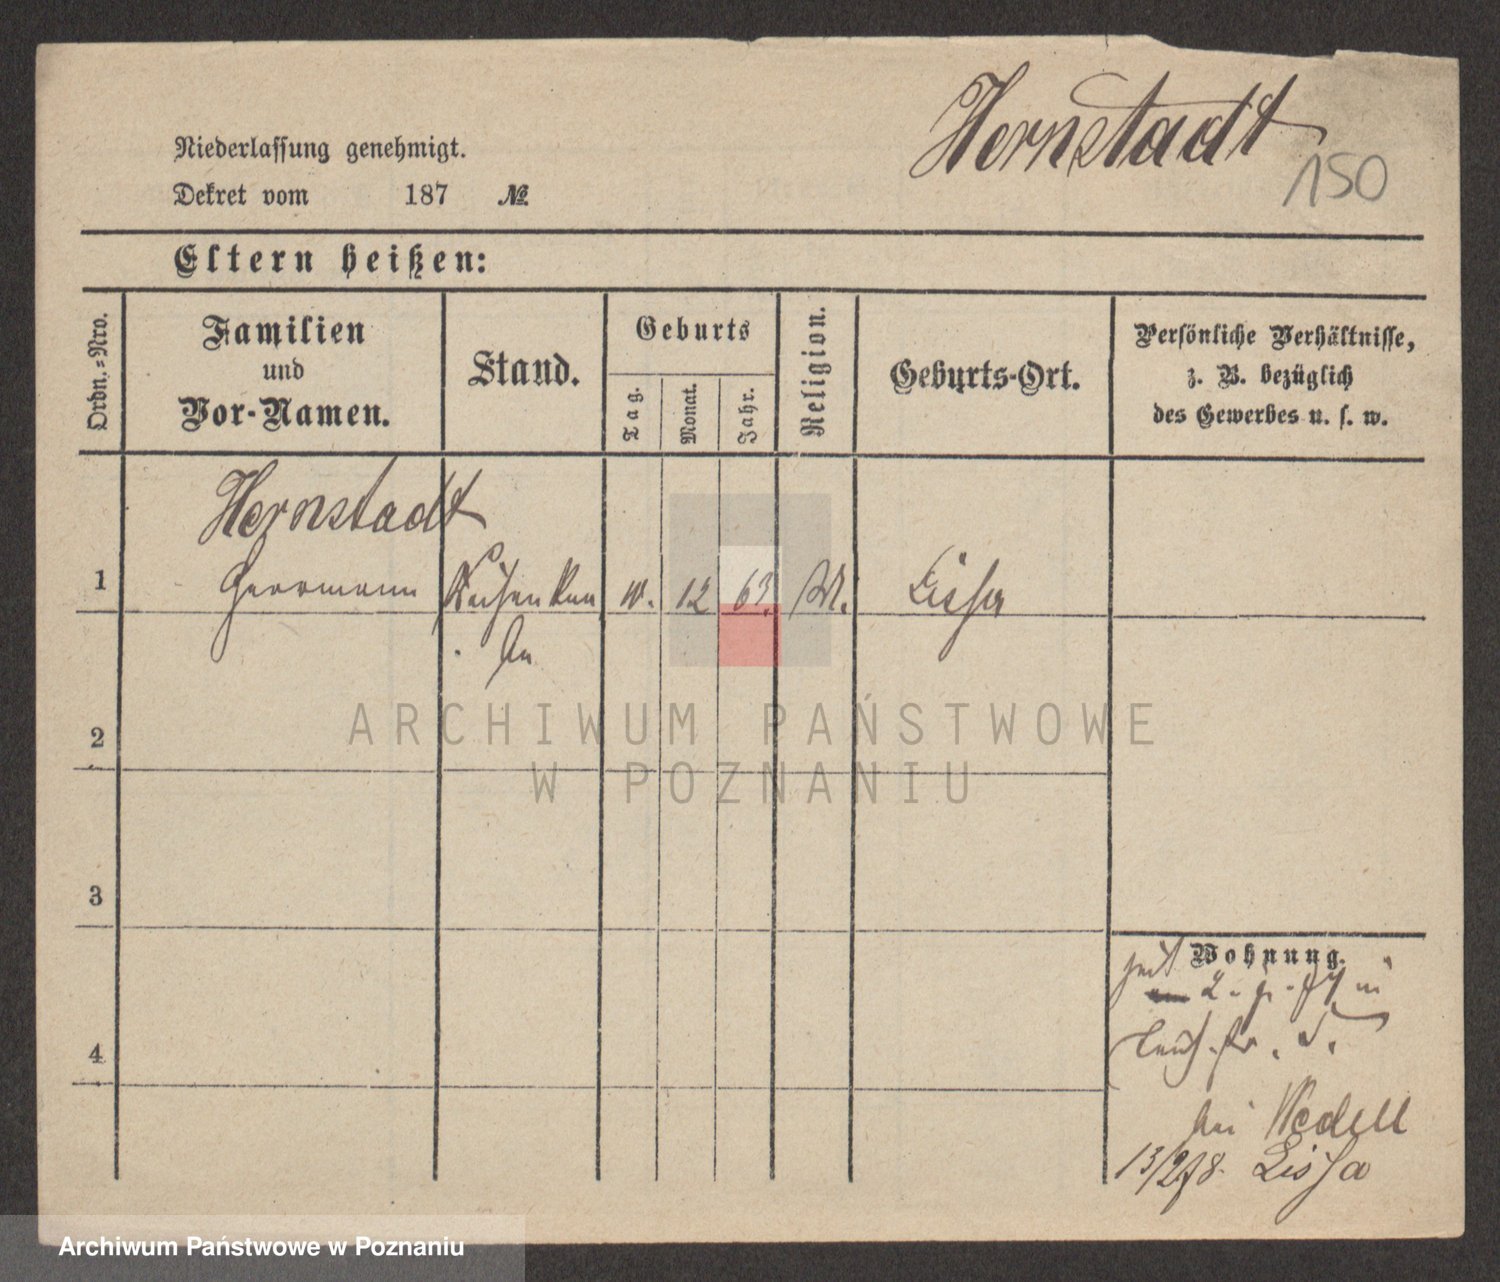 Hernstadt
150
Niederlassung genehmigt.
Dekret vom 187 №
Eltern heißen:
Ordn.=Nro.
Familien
und
Vor-Namen.
Stand.
Geburts
Tag.
Monat.
Jahr.
Religion.
Geburts-Ort.
Persönliche Verhältnisse,
z. B. bezüglich
des Gewerbes u. s. w.
Hernstadt
1 Herrmann 12 63. Lissa
2
3
4
Wohnung.
bei Wedell
13/2 78. Lissa
ARCHIWUM PAŃSTWOWE
W POZNANIU
Archiwum Państwowe w Poznaniu